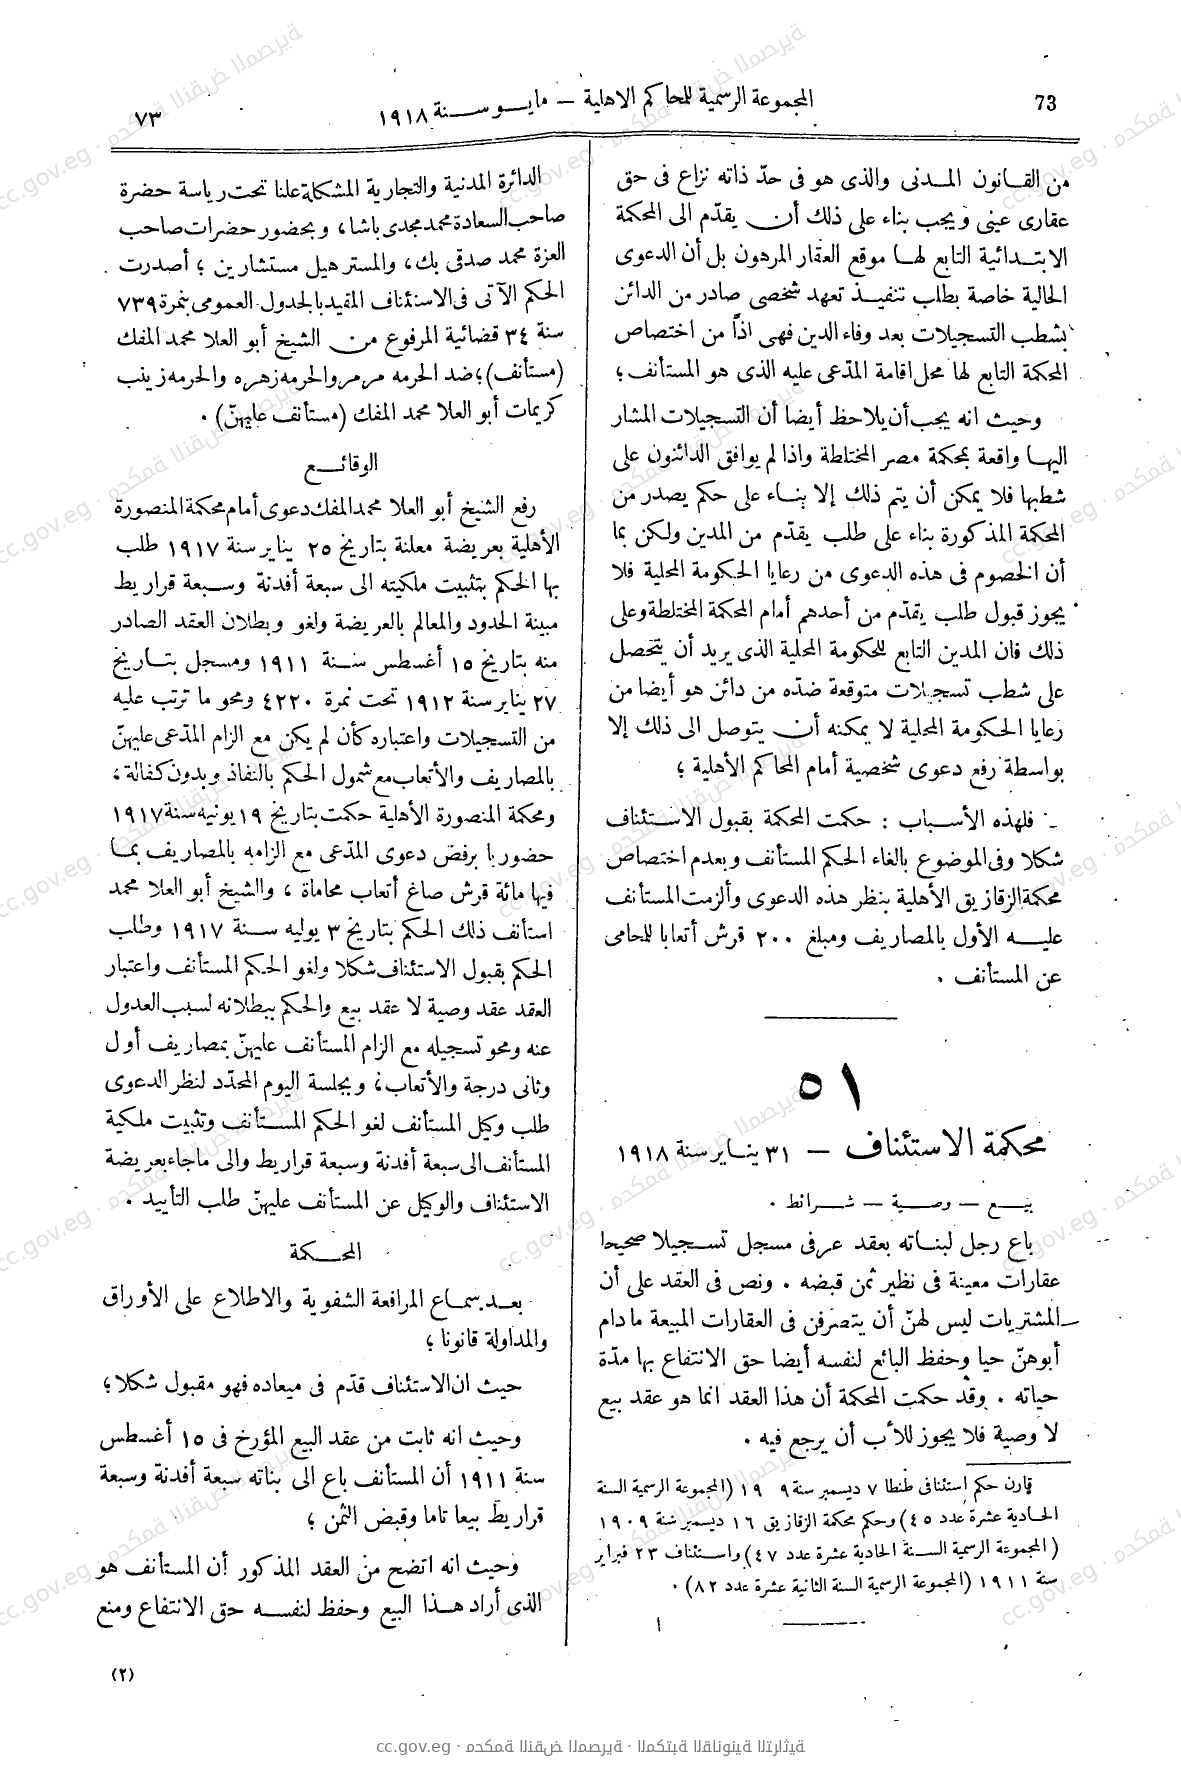 73
المجموعة الرسمية للمحاكم الاهلية – مايو سنة ١٩١٨
٧٣
من القانون المدنى والذى هو فى حدّ ذاته نزاع فى حق
عقارى عينى ويجب بناء على ذلك أن يقدّم الى المحكمة
الابتدائية التابع لها موقع العقار المرهون بل أن الدعوى
الحالية خاصة بطلب تنفيذ تعهد شخصى صادر من الدائن
بشطب التسجيلات بعد وفاء الدين فهى اذاً من اختصاص
المحكمة التابع لها محل اقامة المدّعى عليه الذى هو المستأنف ؛
وحيث انه يجب أن يلاحظ أيضا أن التسجيلات المشار
اليها واقعة بمحكمة مصر المختلطة واذا لم يوافق الدائنون على
شطبها فلا يمكن أن يتم ذلك إلا بناء على حكم يصدر من
المحكمة المذكورة بناء على طلب يقدّم من المدين ولكن بما
أن الخصوم فى هذه الدعوى من رعايا الحكومة المحلية فلا
يجوز قبول طلب يقدّم من أحدهم أمام المحكمة المختلطة وعلى
ذلك فان المدين التابع للحكومة المحلية الذى يريد أن يتحصل
على شطب تسجيلات متوقعة ضدّه من دائن هو أيضا من
رعايا الحكومة المحلية لا يمكنه أن يتوصل الى ذلك إلا
بواسطة رفع دعوى شخصية أمام المحاكم الأهلية ؛
فلهذه الأسباب : حكمت المحكمة بقبول الاستئناف
شكلا وفى الموضوع بالغاء الحكم المستأنف وبعدم اختصاص
محكمة الزقازيق الأهلية بنظر هذه الدعوى وألزمت المستأنف
عليه الأول بالمصاريف ومبلغ ٢٠٠ قرش أتعابا للمحامى
عن المستأنف .
٥١
محكمة الاستئناف – ٣١ يناير سنة ١٩١٨
بيع – وصية – شرائط .
باع رجل لبناته بعقد عرفى مسجل تسجيلا صحيحا
عقارات معينة فى نظير ثمن قبضه . ونص فى العقد على أن
المشتريات ليس لهنّ أن يتصرفن فى العقارات المبيعة مادام
أبوهنّ حيا وحفظ البائع لنفسه أيضا حق الانتفاع بها مدّة
حياته . وقد حكمت المحكمة أن هذا العقد انما هو عقد بيع
لا وصية فلا يجوز للأب أن يرجع فيه .
قارن حكم إستئنافى طنطا ٧ ديسمبر سنة ٩ ١٩ (المجموعة الرسمية السنة
الحادية عشرة عدد ٤٥) وحكم محكمة الزقازيق ١٦ ديسمبر سنة ١٩٠٩
(المجموعة الرسمية السنة الحادية عشرة عدد ٤٧) واستئناف ٢٣ فبراير
سنة ١٩١١ (المجموعة الرسمية السنة الثانية عشرة عدد ٨٢) .
الدائرة المدنية والتجارية المشكلة علنا تحت رياسة حضرة
صاحب السعادة محمد مجدى باشا، وبحضور حضرات صاحب
العزة محمد صدقى بك، والمستر هيل مستشارين ؛ أصدرت
الحكم الآتى فى الاستئناف المقيد بالجدول العمومى بنمرة ٧٣٩
سنة ٣٤ قضائية المرفوع من الشيخ أبو العلا محمد المفك
(مستأنف)؛ ضد الحرمه مرمر والحرمه زهره والحرمه زينب
كريمات أبو العلا محمد المفك (مستأنف عليهنّ) .
الوقائع
رفع الشيخ أبو العلا محمد المفك دعوى أمام محكمة المنصورة
الأهلية بعريضة معلنة بتاريخ ٢٥ يناير سنة ١٩١٧ طلب
بها الحكم بتثبيت ملكيته الى سبعة أفدنة وسبعة قراريط
مبينة الحدود والمعالم بالعريضة ولغو وبطلان العقد الصادر
منه بتاريخ ١٥ أغسطس سنة ١٩١١ ومسجل بتاريخ
٢٧ يناير سنة ١٩١٢ تحت نمرة ٤٢٢٠ ومحو ما ترتب عليه
من التسجيلات واعتباره كأن لم يكن مع الزام المدّعى عليهنّ
بالمصاريف والأتعاب مع شمول الحكم بالنفاذ وبدون كفالة ،
ومحكمة المنصورة الأهلية حكمت بتاريخ ١٩ يونيه سنة ١٩١٧
حضوريا برفض دعوى المدّعى مع الزامه بالمصاريف بما
فيها مائة قرش صاغ أتعاب محاماة ، والشيخ أبو العلا محمد
استأنف ذلك الحكم بتاريخ ٣ يوليه سنة ١٩١٧ وطلب
الحكم بقبول الاستئناف شكلا ولغو الحكم المستأنف واعتبار
العقد عقد وصية لا عقد بيع والحكم ببطلانه لسبب العدول
عنه ومحو تسجيله مع الزام المستأنف عليهنّ بمصاريف أول
وثانى درجة والأتعاب ؛ وبجلسة اليوم المحدّد لنظر الدعوى
طلب وكيل المستأنف لغو الحكم المستأنف وتثبيت ملكية
المستأنف الى سبعة أفدنة وسبعة قراريط والى ماجاء بعريضة
الاستئناف والوكيل عن المستأنف عليهنّ طلب التأييد .
المحكمة
بعد سماع المرافعة الشفوية والاطلاع على الأوراق
والمداولة قانونا ؛
حيث ان الاستئناف قدّم فى ميعاده فهو مقبول شكلا ؛
وحيث انه ثابت من عقد البيع المؤرخ فى ١٥ أغسطس
سنة ١٩١١ أن المستأنف باع الى بناته سبعة أفدنة وسبعة
قراريط بيعا تاما وقبض الثمن ؛
وحيث انه اتضح من العقد المذكور أن المستأنف هو
الذى أراد هذا البيع وحفظ لنفسه حق الانتفاع ومنع
(٢)
cc.gov.eg · محكمة النقض المصرية · المكتبة القانونية التراثية